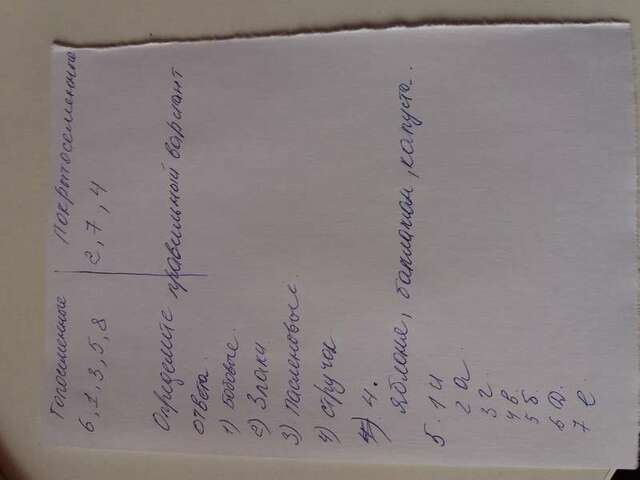 Голосеменные Покрытосеменные
6, 1, 3, 5, 8 2, 7, 4
Определите правильный вариант
ответа.
1) Бобовые.
2) Злаки
3) Пасленовые.
4) стручок
4.
яблоня, баклажан, капуста.
5. 1 и
2 а
3 г
4 в.
5 б.
6 Д.
7 е